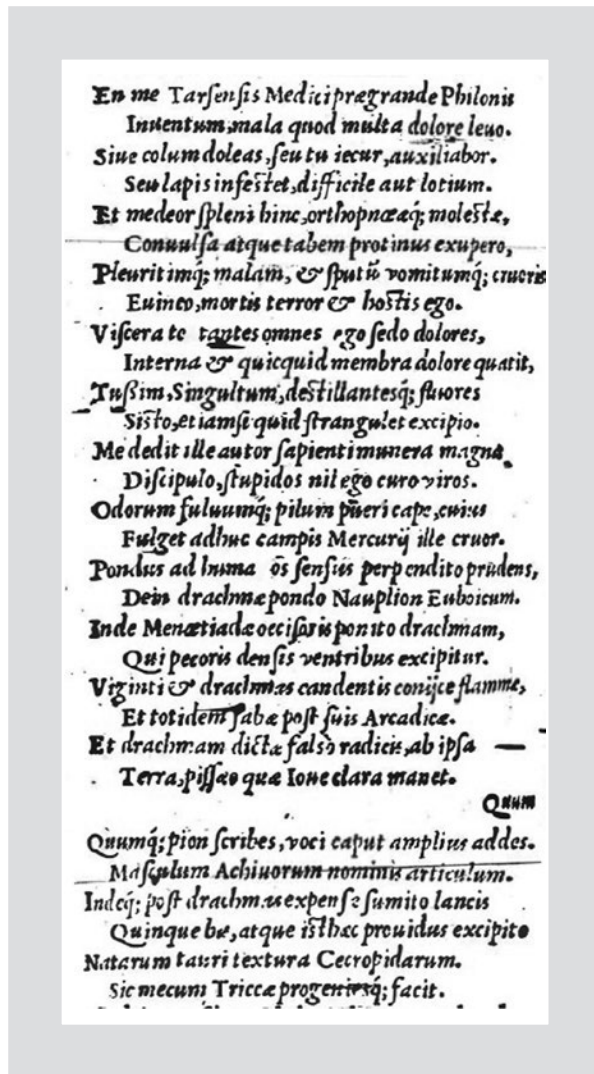 En me Tarſenſis Medici prægrande Philonis
Inuentum, mala quod multa dolore leuo.
Siue colum doleas, ſeu tu iecur, auxiliabor.
Seu lapis infeſtet, difficile aut lotium.
Et medeor ſpleni hinc, orthopnææq; moleſtæ,
Conuulſa atque tabem protinus exupero,
Pleuritimq; malam, & ſputũ vomitumq; cruoris
Euinco, mortis terror & hoſtis ego.
Viſcera omnes ego ſedo dolores,
Interna & quicquid membra dolore quatit,
Tuſsim, Singultum, deſtillantesq; fluores
Siſto, etiamſi quid ſtrangulet excipio.
Me dedit ille autor ſapienti munera magna
Diſcipulo, ſtupidos nil ego curo viros.
Odorum fuluumq; pilum pueri cape, cuius
Fulget adhuc campis Mercurij ille cruor.
Pondus ad ſenſus prudens,
Dein drachmæ pondo Nauplion Euboicum.
Inde Menætiadæ occiſoris ponito drachmam,
Qui pecoris denſis ventribus excipitur.
Viginti & drachmas candentis conijce flammæ,
Et totidem fabæ poſt ſuis Arcadicæ.
Et drachmam dictæ falsò radicis, ab ipſa
Terra, piſſæo quæ Ioue clara manet.
Quum
Quumq; pion ſcribes, voci caput amplius addes.
Maſculum Achiuorum nominis articulum.
Indeq; poſt drachmas expenſæ ſumito lancis
Quinque bæ, atque iſthæc prouidus excipito
Natarum tauri textura Cecropidarum.
Sic mecum Triccæ progeniesq; facit.